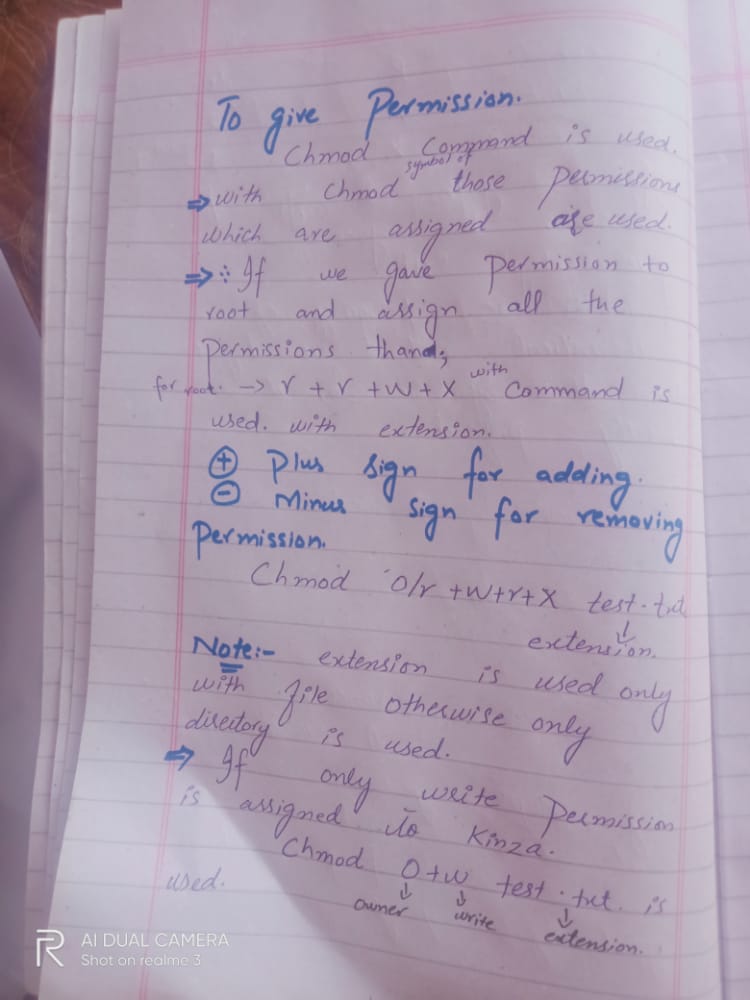 To give Permission.
Chmod Command is used.
symbol of
⇒ with Chmod those permissions
which are assigned are used.
⇒ ∴ If we gave permission to
root and assign all the
permissions thand;
for root. → r + r + w + x with Command is
used. with extension.
⊕ Plus sign for adding.
⊖ Minus sign for removing
Permission.
Chmod O/r +w+r+x test.txt
↓
extension.
Note:- extension is used only
with file otherwise only
directory is used.
⇒ If only write Permission
is assigned to Kinza.
Chmod O+w test.txt. is
used.
↓ ↓ ↓
owner write extension.
R AI DUAL CAMERA
Shot on realme 3